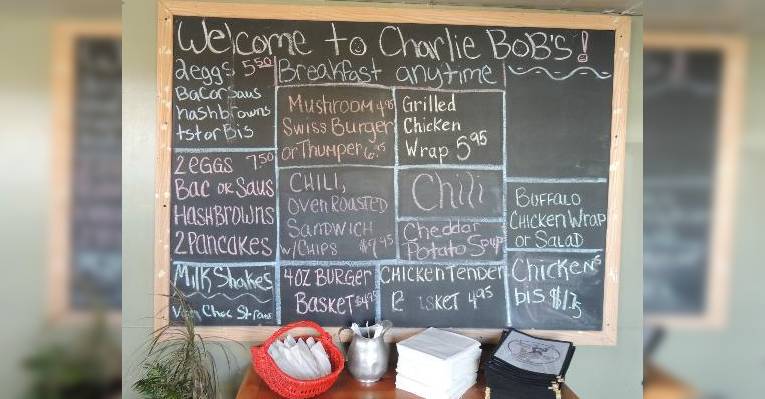 Welcome to Charlie BoB's!
2eggs 5.50
BacorSaus
hashbrowns
tstorBis
Breakfast anytime
MUSHROOM 4.95
Swiss Burger
or Thumper 6.45
Grilled
Chicken
Wrap 5.95
2EGGS 7.50
Bac or Saus
HASHBROWNS
2 Pancakes
CHILI,
OVEN ROASTED
SANDWICH
w/CHIPS $7.95
Chili
Cheddar
Potato Soup
BUFFALO
CHICKEN WRAP
or SALAD
MILK Shakes
Van Choc Straw
4OZ BURGER
BASKET $4.95
CHICKEN TENDER
B SKET 4.95
CHICKENS
bis $1.75